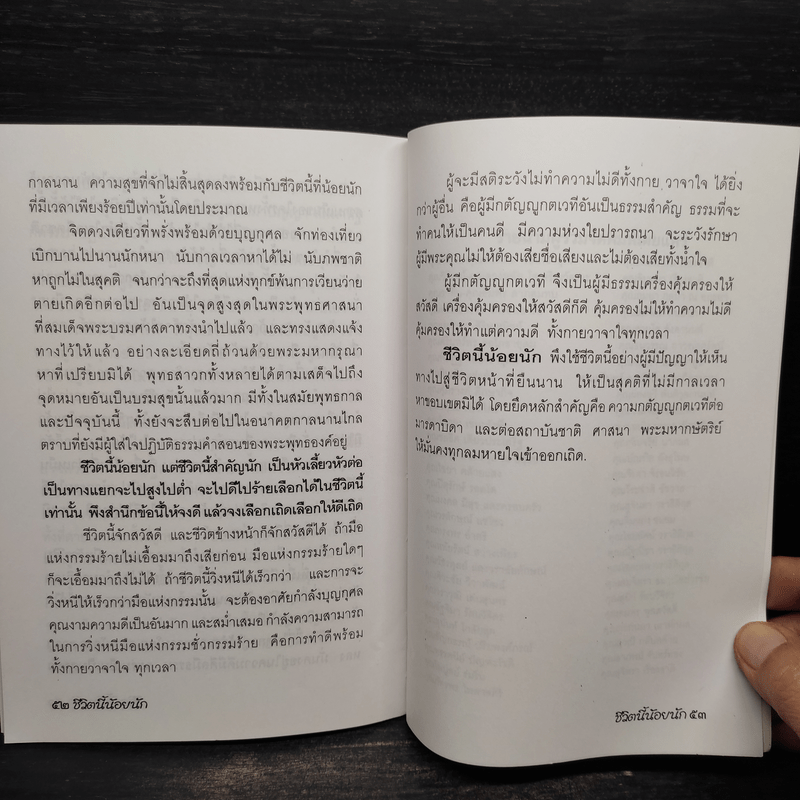 กาลนาน ความสุขที่จักไม่สิ้นสุดลงพร้อมกับชีวิตนี้ที่น้อยนัก
ที่มีเวลาเพียงร้อยปีเท่านั้นโดยประมาณ
จิตดวงเดียวที่พรั่งพร้อมด้วยบุญกุศล จักท่องเที่ยว
เบิกบานไปนานนักหนา นับกาลเวลาหาได้ไม่ นับภพชาติ
หาถูกไม่ในสุคติ จนกว่าจะถึงที่สุดแห่งทุกข์พ้นการเวียนว่าย
ตายเกิดอีกต่อไป อันเป็นจุดสูงสุดในพระพุทธศาสนา
ที่สมเด็จพระบรมศาสดาทรงนำไปแล้ว และทรงแสดงแจ้ง
ทางไว้ให้แล้ว อย่างละเอียดถี่ถ้วนด้วยพระมหากรุณา
หาที่เปรียบมิได้ พุทธสาวกทั้งหลายได้ตามเสด็จไปถึง
จุดหมายอันเป็นบรมสุขนั้นแล้วมาก มีทั้งในสมัยพุทธกาล
และปัจจุบันนี้ ทั้งยังจะสืบต่อไปในอนาคตกาลนานไกล
ตราบที่ยังมีผู้ใส่ใจปฏิบัติธรรมคำสอนของพระพุทธองค์อยู่
ชีวิตนี้น้อยนัก แต่ชีวิตนี้สำคัญนัก เป็นหัวเลี้ยวหัวต่อ
เป็นทางแยกจะไปสูงไปต่ำ จะไปดีไปร้ายเลือกได้ในชีวิตนี้
เท่านั้น พึงสำนึกข้อนี้ให้จงดี แล้วจงเลือกเถิดเลือกให้ดีเถิด
ชีวิตนี้จักสวัสดี และชีวิตข้างหน้าก็จักสวัสดีได้ ถ้ามือ
แห่งกรรมร้ายไม่เอื้อมมาถึงเสียก่อน มือแห่งกรรมร้ายใดๆ
ก็จะเอื้อมมาถึงไม่ได้ ถ้าชีวิตนี้วิ่งหนีได้เร็วกว่า และการจะ
วิ่งหนีให้เร็วกว่ามือแห่งกรรมนั้น จะต้องอาศัยกำลังบุญกุศล
คุณงามความดีเป็นอันมาก และสม่ำเสมอ กำลังความสามารถ
ในการวิ่งหนีมือแห่งกรรมชั่วกรรมร้าย คือการทำดีพร้อม
ทั้งกายวาจาใจ ทุกเวลา
๕๒ ชีวิตนี้น้อยนัก
ผู้จะมีสติระวังไม่ทำความไม่ดีทั้งกาย วาจาใจ ได้ยิ่ง
กว่าผู้อื่น คือผู้มีกตัญญูกตเวทีอันเป็นธรรมสำคัญ ธรรมที่จะ
ทำคนให้เป็นคนดี มีความห่วงใยปรารถนา จะระวังรักษา
ผู้มีพระคุณไม่ให้ต้องเสียชื่อเสียงและไม่ต้องเสียทั้งน้ำใจ
ผู้มีกตัญญูกตเวที จึงเป็นผู้มีธรรมเครื่องคุ้มครองให้
สวัสดี เครื่องคุ้มครองให้สวัสดีก็ดี คุ้มครองไม่ให้ทำความไม่ดี
คุ้มครองให้ทำแต่ความดี ทั้งกายวาจาใจทุกเวลา
ชีวิตนี้น้อยนัก พึงใช้ชีวิตนี้อย่างผู้มีปัญญาให้เห็น
ทางไปสู่ชีวิตหน้าที่ยืนนาน ให้เป็นสุคติที่ไม่มีกาลเวลา
หาขอบเขตมิได้ โดยยึดหลักสำคัญคือ ความกตัญญูกตเวทีต่อ
มารดาบิดา และต่อสถาบันชาติ ศาสนา พระมหากษัตริย์
ให้มั่นคงทุกลมหายใจเข้าออกเถิด.
ชีวิตนี้น้อยนัก ๕๓